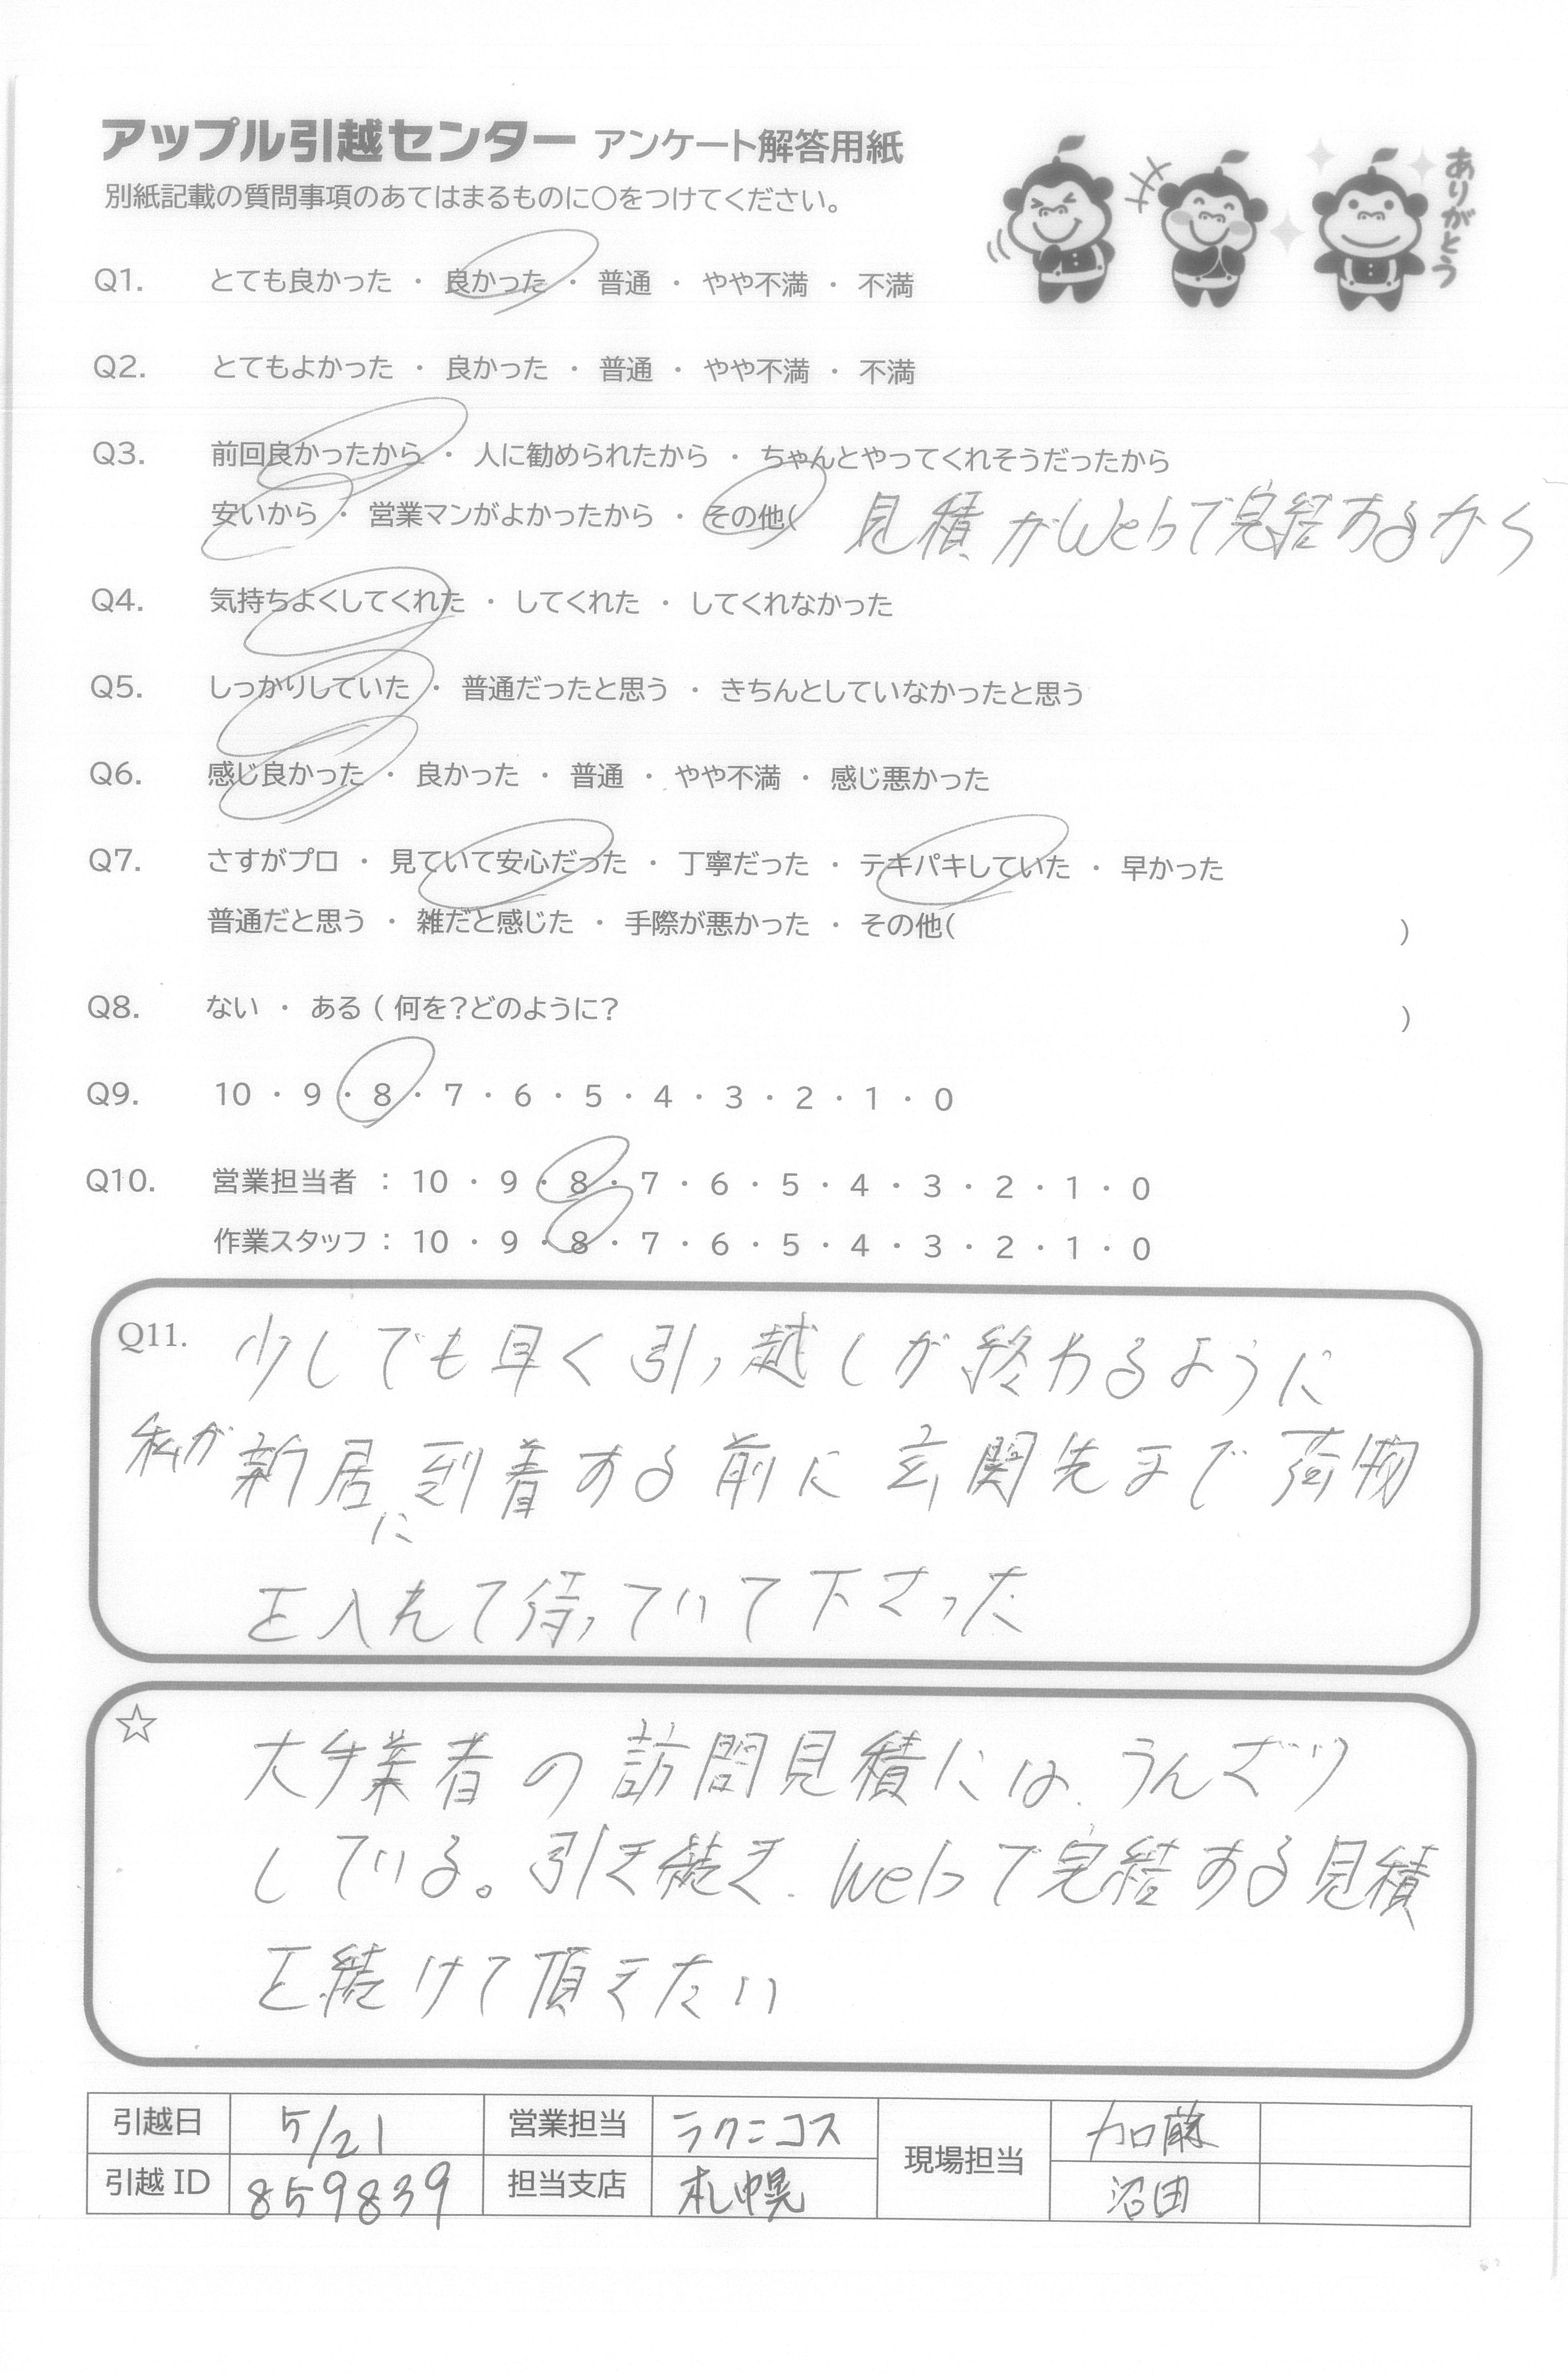 アップル引越センター アンケート解答用紙
別紙記載の質問事項のあてはまるものに○をつけてください。
ありがとう
Q1. とても良かった ・ 良かった ・ 普通 ・ やや不満 ・ 不満
Q2. とてもよかった ・ 良かった ・ 普通 ・ やや不満 ・ 不満
Q3. 前回良かったから ・ 人に勧められたから ・ ちゃんとやってくれそうだったから
安いから ・ 営業マンがよかったから ・ その他( 見積がWebで完結するから
Q4. 気持ちよくしてくれた ・ してくれた ・ してくれなかった
Q5. しっかりしていた ・ 普通だったと思う ・ きちんとしていなかったと思う
Q6. 感じ良かった ・ 良かった ・ 普通 ・ やや不満 ・ 感じ悪かった
Q7. さすがプロ ・ 見ていて安心だった ・ 丁寧だった ・ テキパキしていた ・ 早かった
普通だと思う ・ 雑だと感じた ・ 手際が悪かった ・ その他( )
Q8. ない ・ ある ( 何を?どのように? )
Q9. 10 ・ 9 ・ 8 ・ 7 ・ 6 ・ 5 ・ 4 ・ 3 ・ 2 ・ 1 ・ 0
Q10. 営業担当者 : 10 ・ 9 ・ 8 ・ 7 ・ 6 ・ 5 ・ 4 ・ 3 ・ 2 ・ 1 ・ 0
作業スタッフ : 10 ・ 9 ・ 8 ・ 7 ・ 6 ・ 5 ・ 4 ・ 3 ・ 2 ・ 1 ・ 0
Q11. 少しでも早く引っ越しが終わるように
私が新居に到着する前に玄関先まで荷物
を入れて待っていて下さった
☆ 大手業者の訪問見積には、うんざり
している。引き続き、Webで完結する見積
を続けて頂きたい
引越日 5/21 営業担当 ラクニコス 現場担当 加藤
引越ID 859839 担当支店 札幌 沼田